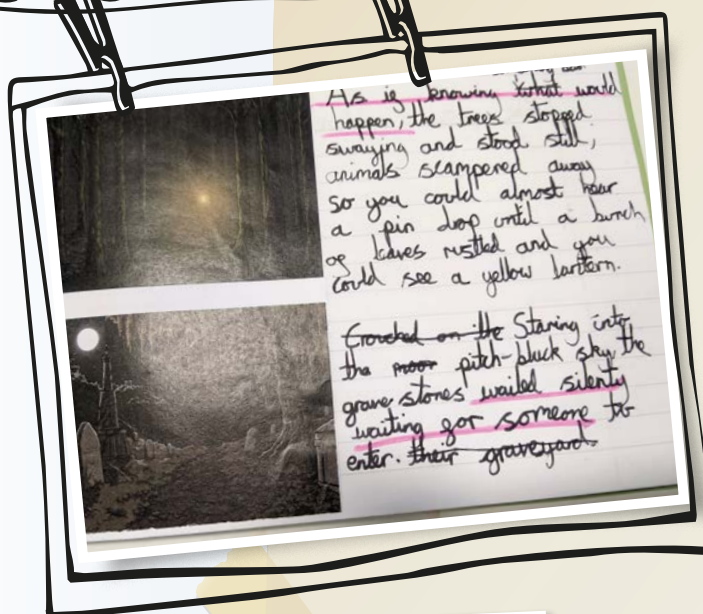 As if knowing what would
happen, the trees stopped
swaying and stood still;
animals scampered away
so you could almost hear
a pin drop until a bunch
of leaves rustled and you
could see a yellow lantern.
Crouched on the Staring into
the moor pitch-black sky, the
grave stones wailed silently
waiting for someone to
enter. their graveyard.